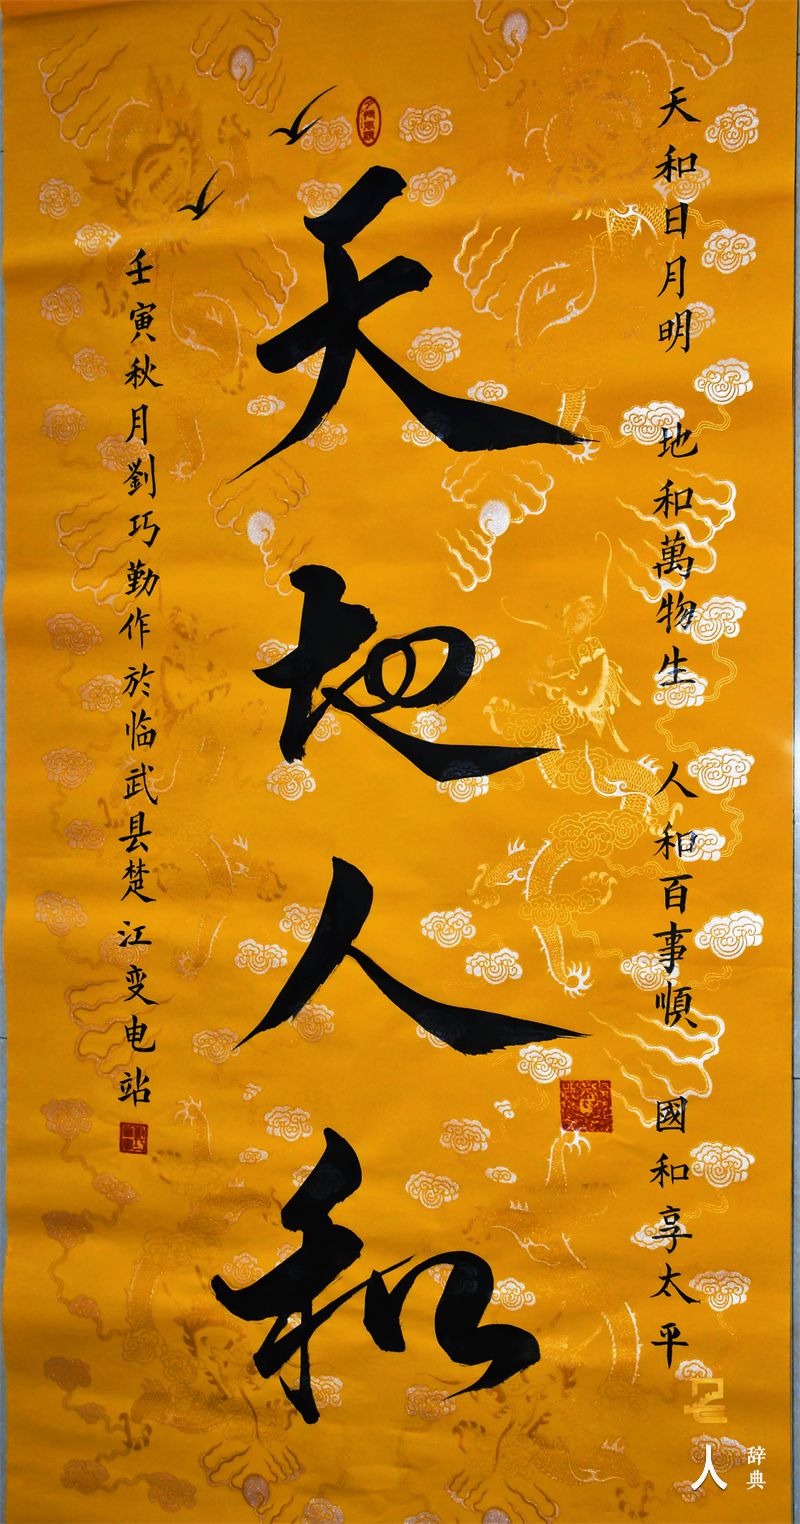 天和日月明 地和萬物生 人和百事順 國和享太平
天地人和
壬寅秋月劉巧勤作於临武县楚江变电站
名人
辞典